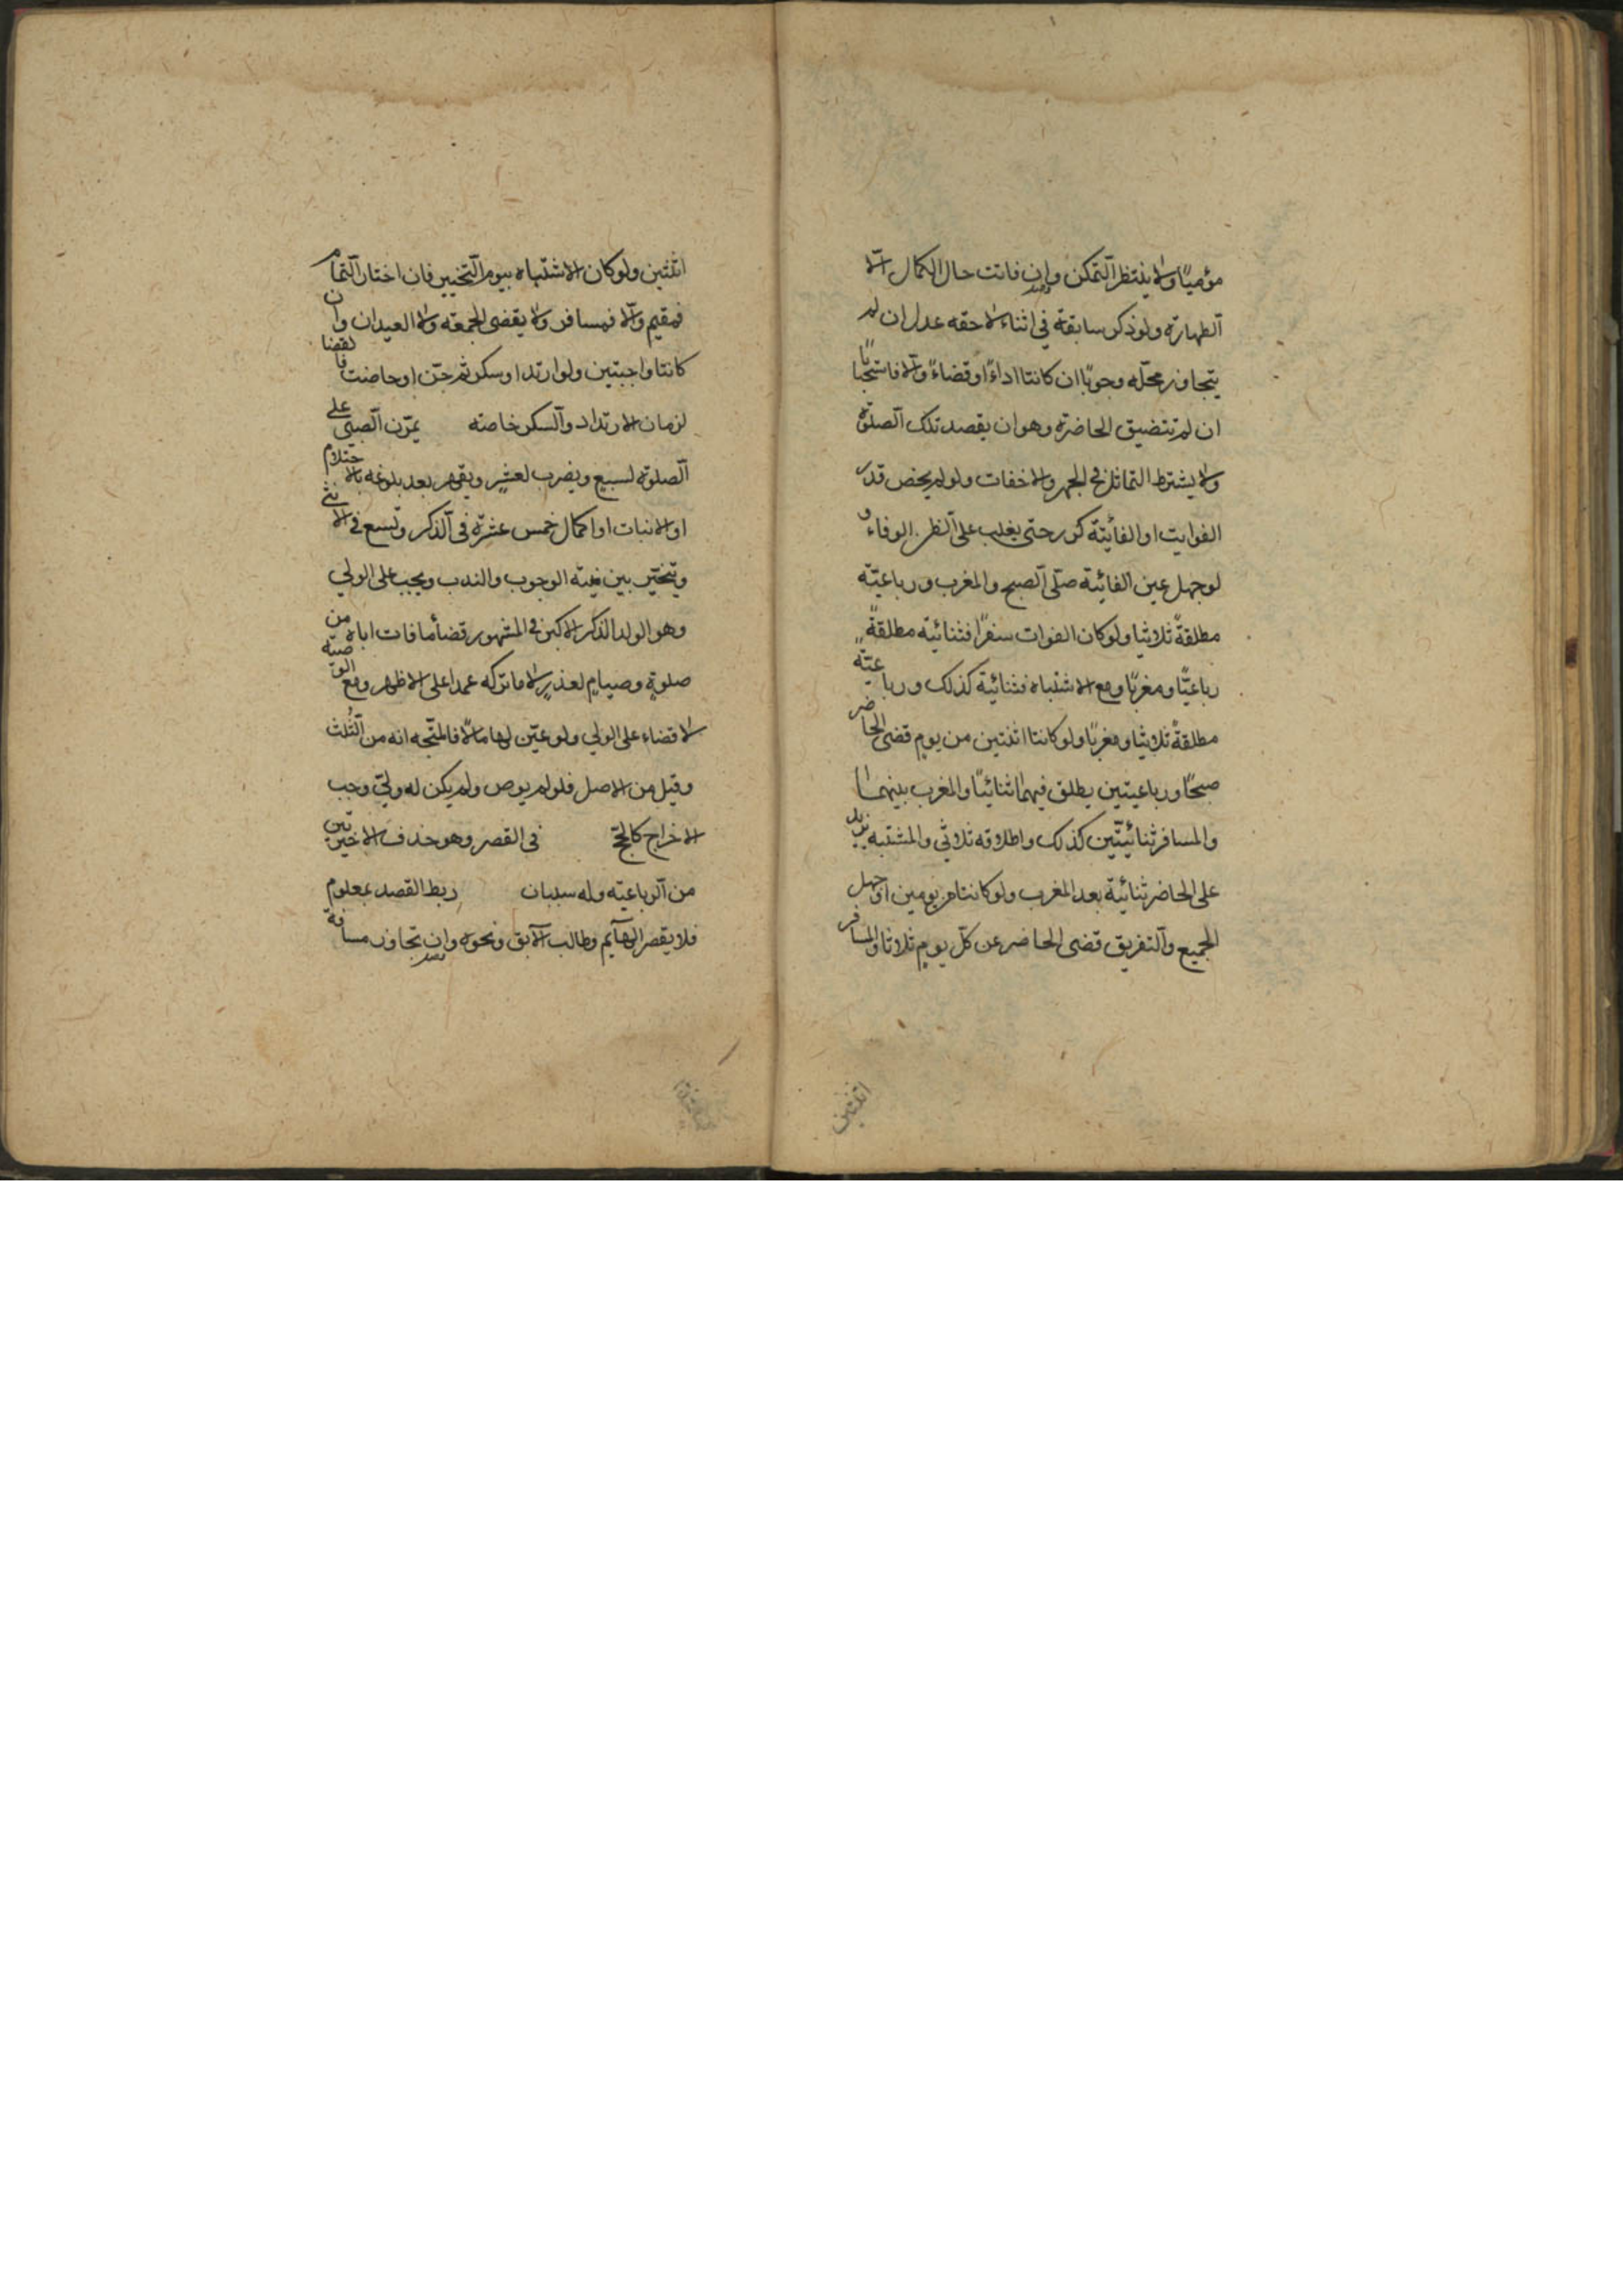 مؤميًا ولا ينتظر التمكن وان فاتت حال الكمال الّا
الطهارة ولو ذكر سابقة في اثناء لاحقه عدل ان لم
يتجاوز محلّه وجوبًا ان كانتا اداءً او قضاءً والّا فاستحبابًا
ان لم تتضيق الحاضرة وهو ان يقصد تلك الصلوة
ولا يشترط التماثل في الجهر والاخفات ولو لم يحص قدر
الفوايت او الفائتة كرر حتى يغلب على الظن الوفاء و
لو جهل عين الفائتة صلّى الصبح والمغرب ورباعيّة
مطلقةً ثلاثيا ولو كان الفوات سفرًا فثنائية مطلقةً
رباعيًّا ومغربًا ومع الاشتباه فثنائية كذلك ورباعيّةً
مطلقةً ثلاثيا ومغربًا ولو كانتا اثنتين من يوم قضى الحاضر
صبحًا ورباعيتين يطلق فيهما ثنائيًا والمغرب بينهما
والمسافر ثنائيّتين كذلك واطلاقه ثلاثي والمشتبه يزيد
على الحاضر ثنائيّة بعد المغرب ولو كانتا من يومين او جهل
الجميع والتفريق قضى الحاضر عن كلّ يوم ثلاثا والمسافر
اثنتين
اثنتين ولو كان الاشتباه بيوم التخيير فان اختار التمام
فمقيم والّا فمسافر ولا يقضى الجمعة ولا العيدان وان
كانتا واجبتين ولو ارتد او سكر ثم جنّ او حاضت فالقضا
لزمان الارتداد والسكر خاصة يمرّن الصبّى على
الصلوة لسبع ويضرب لعشر ويقهر بعد بلوغه بالاحتلام
او الانبات او اكمال خمس عشرة في الذكر وتسع في الانثى
ويتخيّر بين نيّة الوجوب والندب ويجب على الولي
وهو الولد الذكر الاكبر في المشهور قضأ ما فات اباه من
صلوةٍ وصيامٍ لعذرٍ لا ما تركه عمدا على الاظهر ومع الوصيّة
لا قضاء على الولي ولو عيّن لها مالًا فالمتّجه انه من الثُلث
وقيل من الاصل فلو لم يوص ولم يكن له وليّ وجب
الاخراج كالحجّ في القصر وهو حذف الاخيرتين
من الرباعيّة وله سببان ربط القصد بمعلوم
فلا يقصر الهآئم وطالب الآبق ونحوه وان تجاوز مسافة